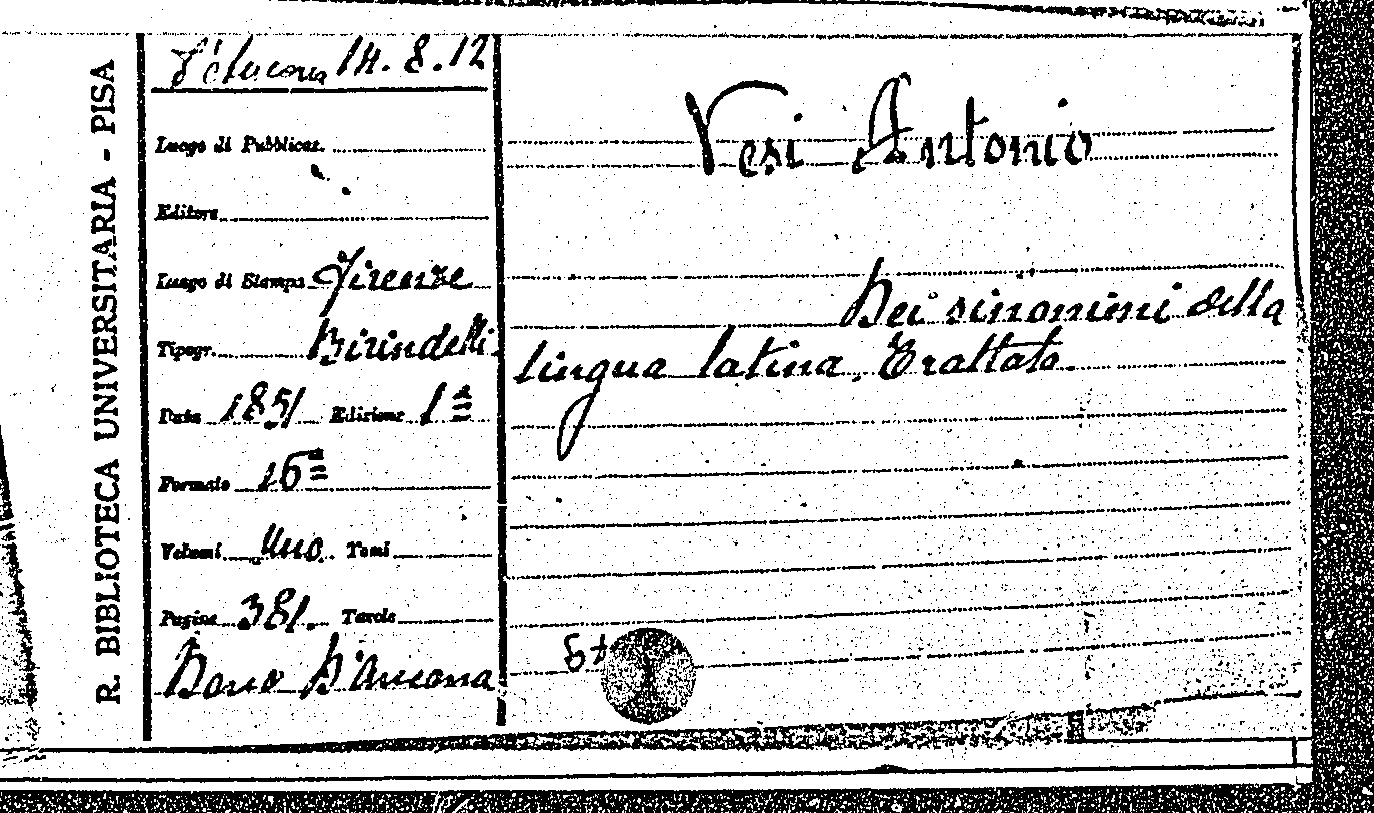 R. BIBLIOTECA UNIVERSITARIA - PISA
D'Ancona 14.8.12
Luogo di Pubblicaz.
Editore
Luogo di Stampa Firenze
Tipogr. Birindelli
Data 1851 Edizione 1ª
Formato 16º
Volumi Uno Tomi
Pagine 381. Tavole
Dono D'Ancona
Vesi Antonio
Dei sinonimi della
lingua latina. Trattato.
St